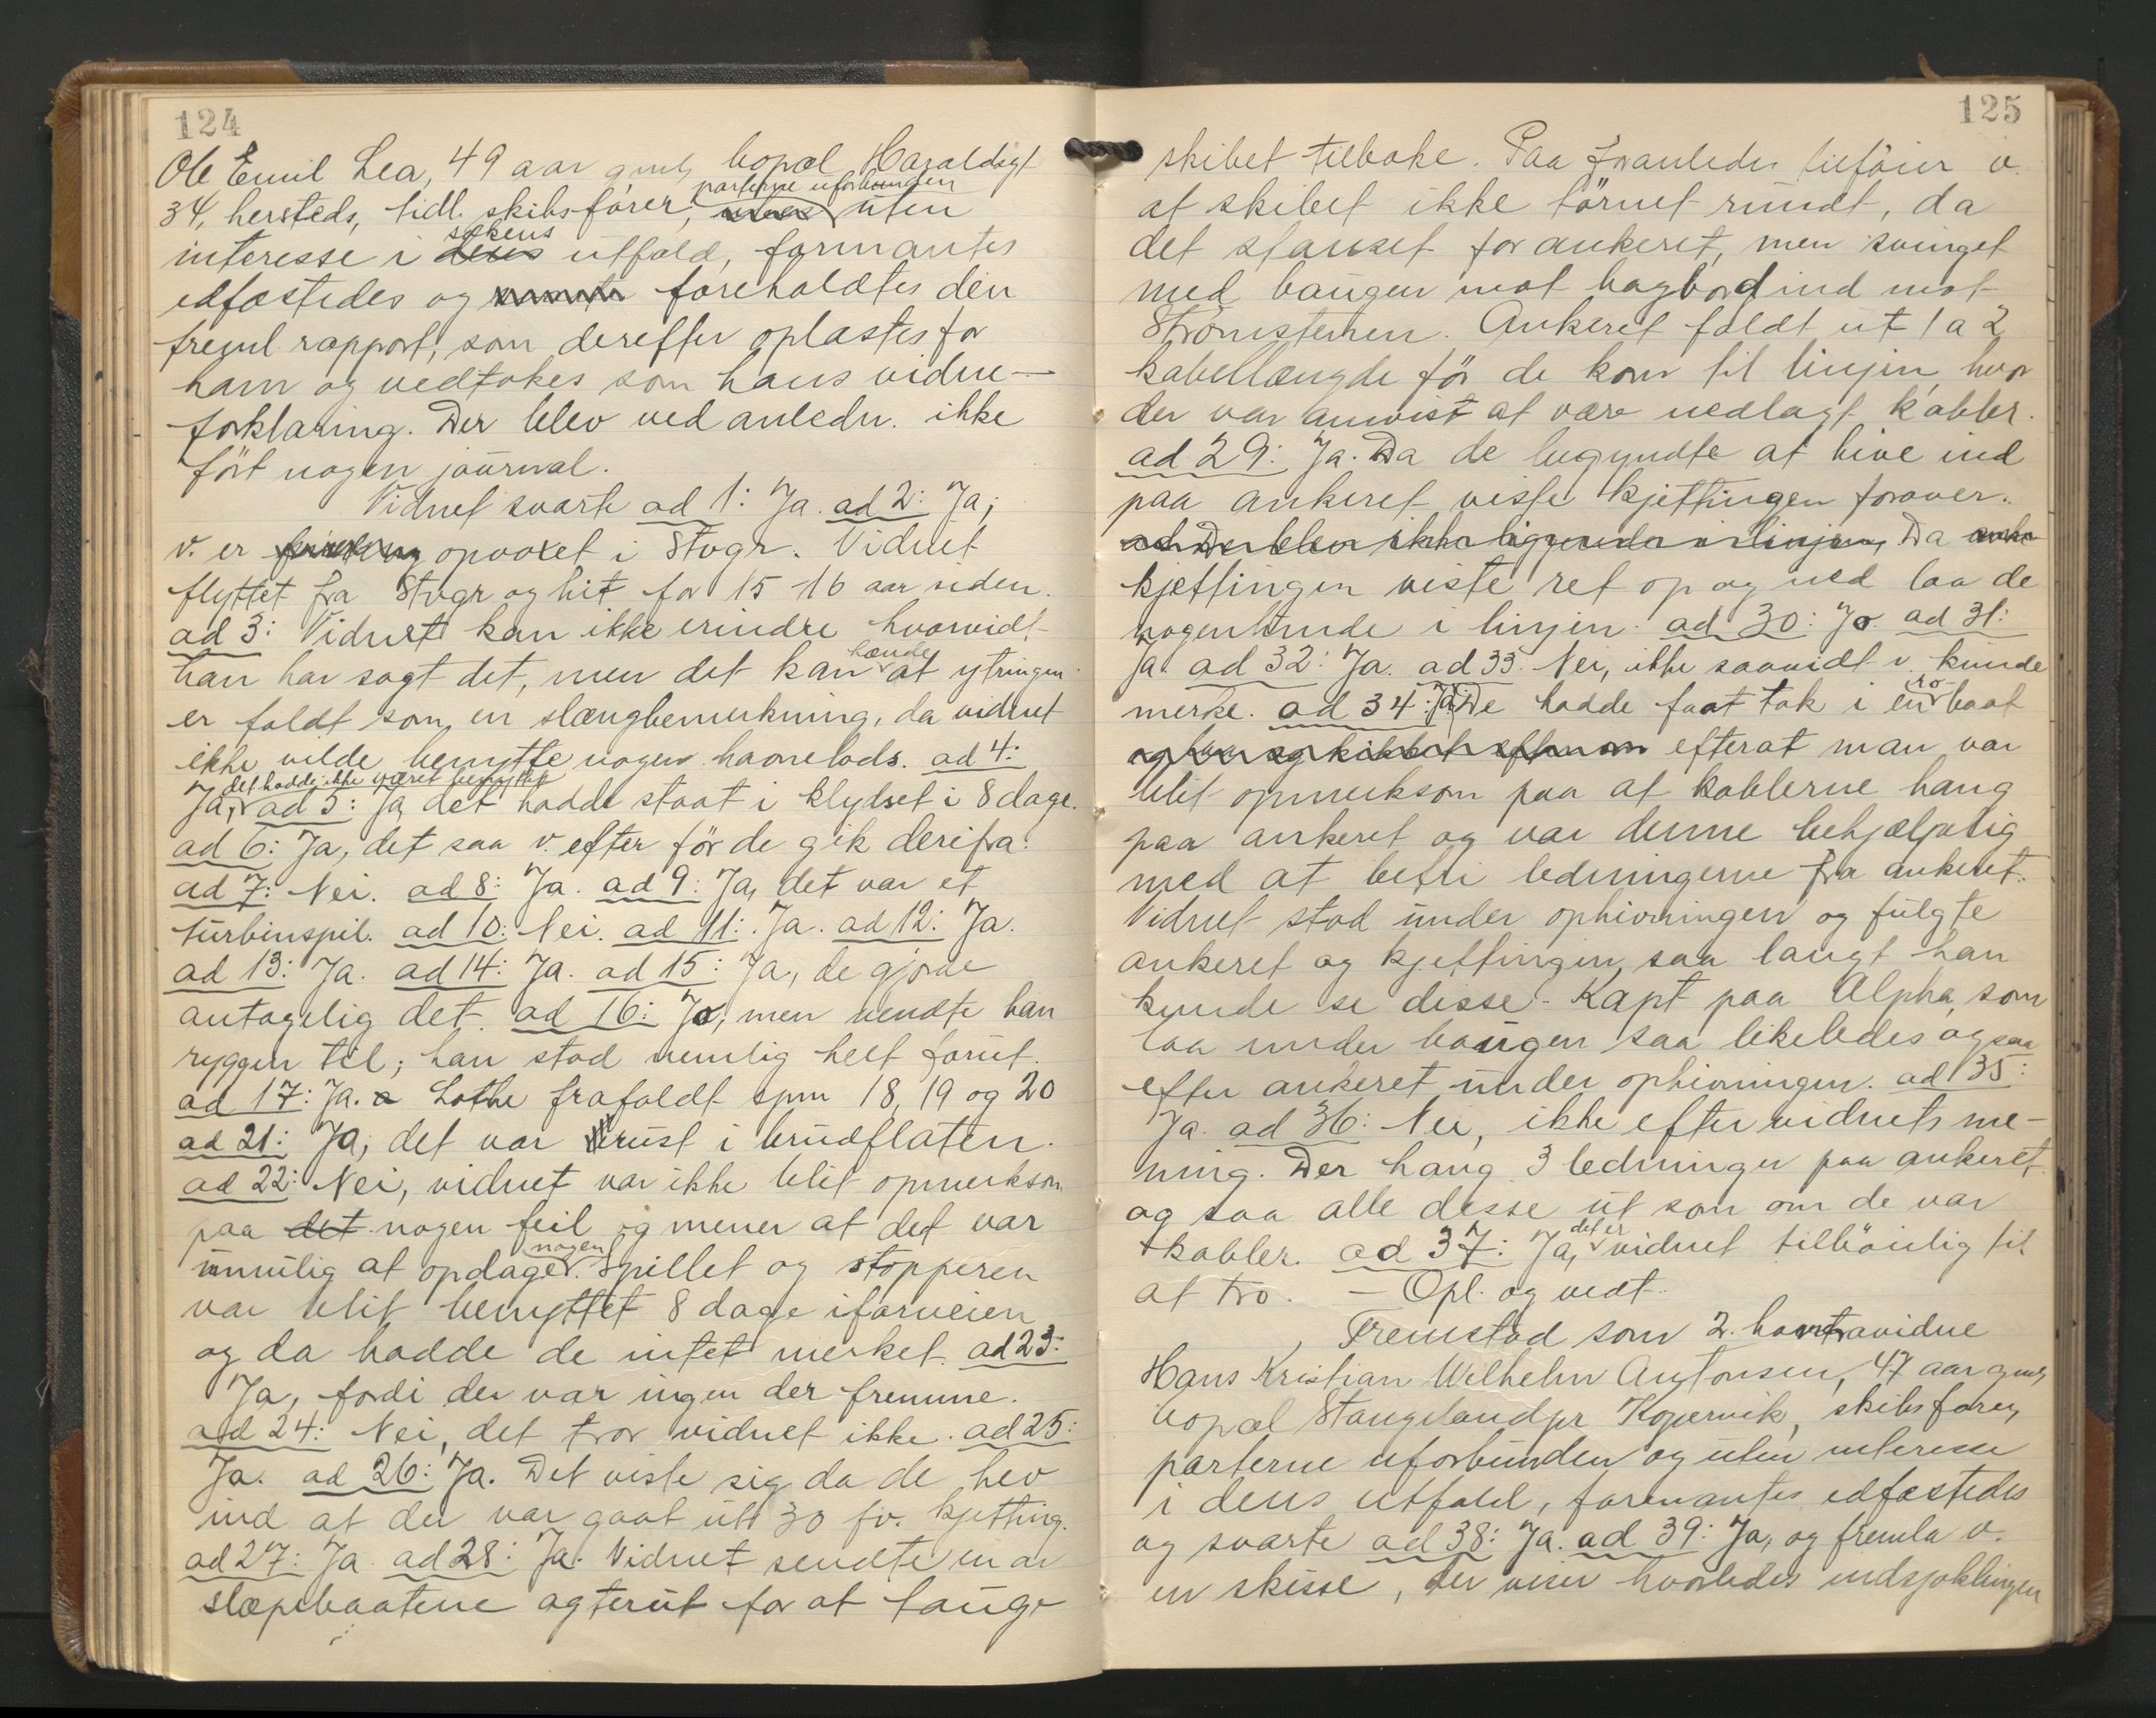 124
Ole Emil Lea, 49 aar gml, bopæl Haraldsgt
34, hersteds, tidl. skibsfører, parterne uforbunden uten
interesse i sakens utfald, formantes
edfæstedes og foreholdtes den
freml rapport, som derefter oplæstes for
ham og vedtokes som hans vidne-
forklaring. Der blev ved anledn. ikke
ført nogen journal.
Vidnet svarte ad 1: Ja. ad 2: Ja;
v. er opvoxet i Stvgr. Vidnet
flyttet fra Stvgr og hit for 15 16 aar siden.
ad 3: Vidnet kan ikke erindre hvorvidt
han har sagt det, men det kan hænde at ytringen
er faldt som en slængbemerkning, da vidnet
ikke vilde benytte nogen havnelods. ad 4:
Ja, det hadde ikke været benyttet ad 5: Ja, det hadde staat i klydset i 8 dage.
ad 6: Ja, det saa v. efter før de gik derifra.
ad 7: Nei. ad 8: Ja. ad 9: Ja, det var et
turbinspil. ad 10: Nei. ad 11: Ja. ad 12: Ja.
ad 13: Ja. ad 14: Ja. ad 15: Ja, de gjorde
antagelig det. ad 16: Ja, men vendte han
ryggen til; han stod nemlig helt forut.
ad 17: Ja. Lothe frafaldt spm 18, 19 og 20
ad 21: Ja, det var rust i brudflaten.
ad 22: Nei, vidnet var ikke blit opmerksom
paa det nogen feil og mener at det var
umulig at opdage nogen. Spillet og stopperen
var blit benyttet 8 dage iforveien
og da hadde de intet merket. ad 23:
Ja, fordi der var ingen der fremme.
ad 24: Nei, det tror vidnet ikke. ad 25:
Ja. ad 26: Ja. Det viste sig da de hev
ind at der var gaat ut 30 fv. kjetting.
ad 27: Ja. ad 28: Ja. Vidnet sendte en av
slæpebaatene agterut for at tauge
125
skibet tilbake. Paa foranledn tilføier v.
at skibet ikke tørnet rundt, da
det stanset for ankeret, men svinget
med baugen mot bagbord ind mot
Strømstenen. Ankeret faldt ut 1 a 2
kabellængde før de kom til linjen, hvor
der var anvist at være nedlagt kabler.
ad 29: Ja. Da de begyndte at hive ind
paa ankeret viste kjettingen forover.
ad Der blev ikke liggende i linjen, Da
kjettingen viste ret op og ned laa de
nogenlunde i linjen. ad 30: Ja. ad 31:
Ja. ad 32: Ja. ad 33. Nei, ikke saavidt v. kunde
merke. ad 34: Ja. De hadde faat tak i en ro baat
efterat man var
blit opmerksom paa at kablerne hang
paa ankeret og var denne behjælpelig
med at befri ledningerne fra ankeret.
Vidnet stod under ophivningen og fulgte
ankeret og kjettingen saa langt han
kunde se disse. Kapt paa Alpha, som
laa under baugen saa likeledes ogsaa
efter ankeret under ophivningen. ad 35:
Ja. ad 36: Nei, ikke efter vidnets me-
ning. Der hang 3 ledninger paa ankeret,
og saa alle desse ut som om de var
kabler. ad 37: Ja, det er vidnet tilbøielig til
at tro. — Opl. og vedt.
Fremstod som 2. kontravidne
Hans Kristian Wilhelm Antonsen, 47 aar gml,
bopæl Stangeland pr Kopervik, skibsfører,
parterne uforbunden og uten interesse
i dens utfald, formantes edfæstedes
og svarte ad 38: Ja. ad 39: Ja, og fremla v.
en skisse, der viser hvorledes indsjaklingen